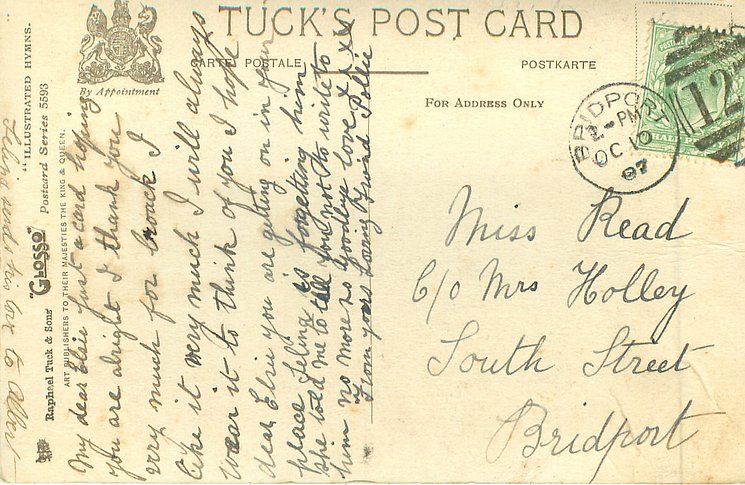 TUCK'S POST CARD
CARTE POSTALE
POSTKARTE
By Appointment
FOR ADDRESS ONLY
"ILLUSTRATED HYMNS."
Postcard Series 5593
"GLOSSO"
Raphael Tuck & Sons'
ART PUBLISHERS TO THEIR MAJESTIES THE KING & QUEEN.
BRIDPORT
2-PM
OC 10
07
12
My dear Elsie just a card hoping
you are alright I thank you
very much for brouch I
like it very much I will always
wear it to think of you I hope
dear Elsie you are getting on in your
place feling is forgetting him
she told me to tell you not to write to
him no more so goodbye love xxx
From your Loving Friend Pollie
sends his love to
Miss Read
C/o Mrs Holley
South Street
Bridport